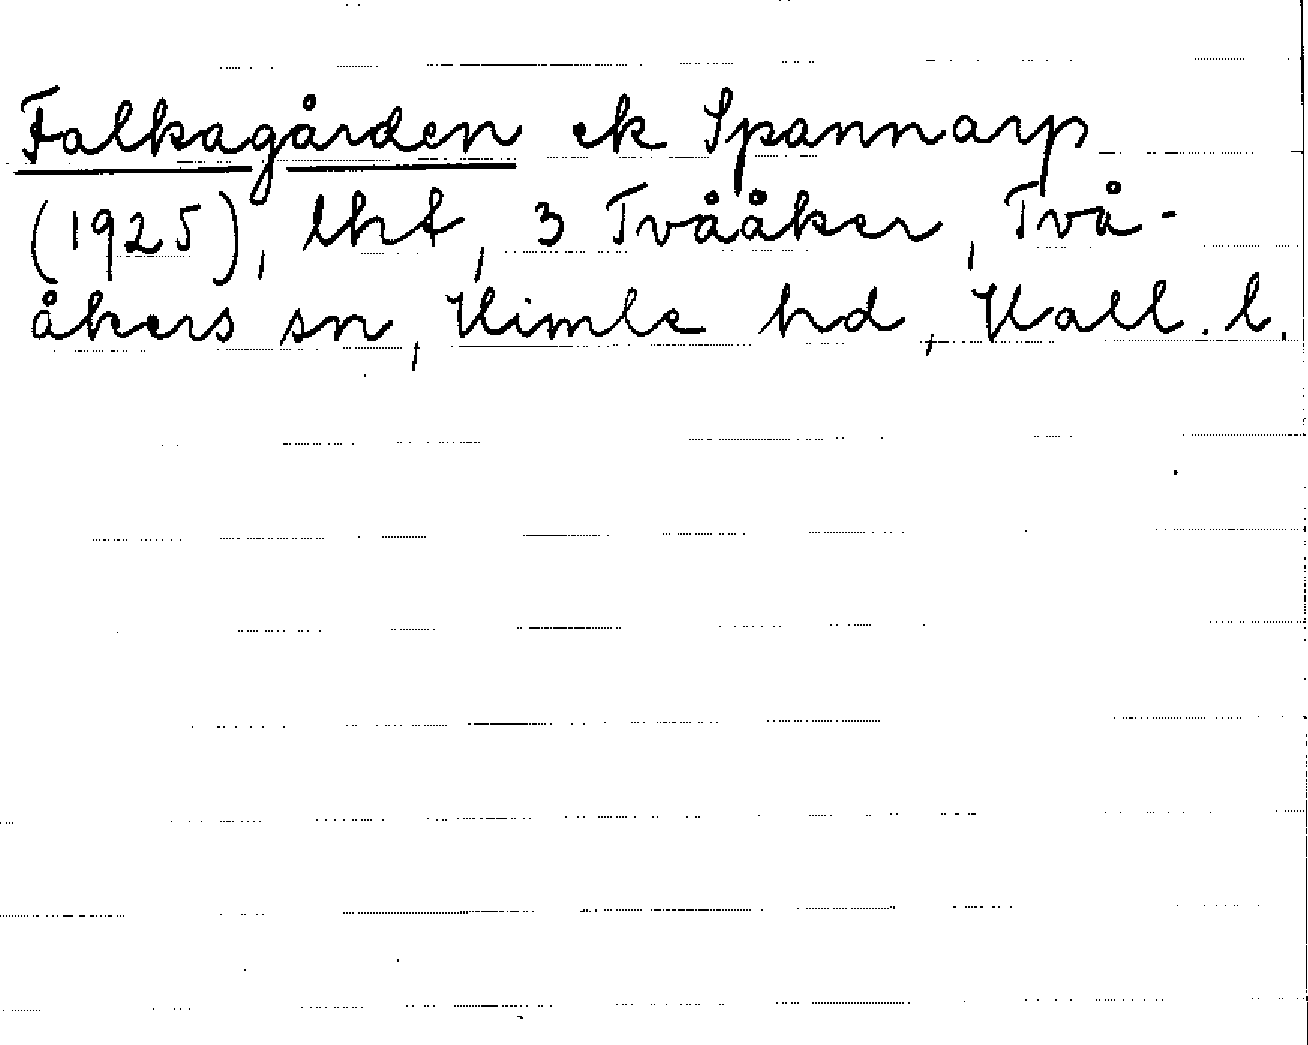 Falkagården ek Spannarp
(1925), lht, 3 Tvååker, Två-
åkers sn, Himle hd, Hall. l.